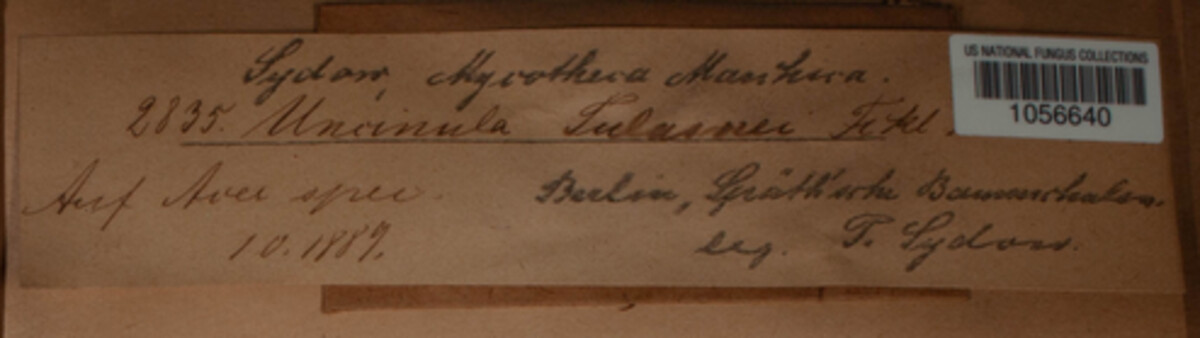 Sydow, Mycotheca Marchica.
US NATIONAL FUNGUS COLLECTIONS
1056640
2835. Uncinula Tulasnei Fckl.
Auf Acer spec. Berlin, Späth'sche Baumschulen.
10.1889. leg. P. Sydow.